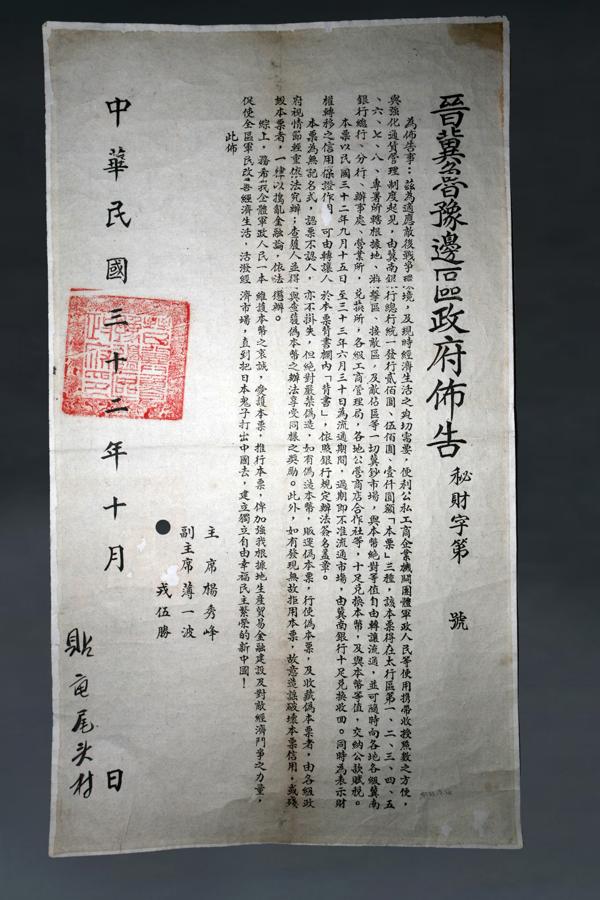 晉冀魯豫邊區政府佈告 秘財字第 號
為佈告事：茲為適應敵後戰爭環境，及現時經濟生活之爽切需要，便利公私工商企業機關團體軍政人民等使用携帶收授照數之方便，
與強化通貨管理制度起見，由冀南銀行總行統一發行貳佰圓、伍佰圓、壹仟圓額「本票」三種，該本票得在太行區第一、二、三、四、五
、六、七、八、專署所轄根據地、游擊區、接敵區，及敵佔區等一切冀鈔市場，與本幣絕對等值自由轉讓流通，並可隨時向各地各級冀南
銀行總行、分行、辦事處、營業所，兌換所，各級工商管理局，各地公營商店合作社等，十足兌換本幣，及與本幣等值，交納公款賦稅。
本票以民國三十二年九月十五日至三十三年六月三十日為流通期間，過期即不准流通市場，由冀南銀行十足兌換收回。同時為表示財
權轉移之信用保證作用，可由轉讓人於本票背書欄內「背書」，依照銀行規定辦法簽名蓋章。
本票為無記名式，認票不認人，亦不掛失，但絕對嚴禁偽造，如有偽造本幣，販運偽本票，行使偽本票，及收藏偽本票者，由各級政
府視情節輕重依法究辦；查獲人並得與查獲偽本幣之辦法享受同樣之獎勵。此外，如有發現無故拒用本票，故意造謠破壞本票信用，或殘
毀本票者，一律以擾亂金融論，依法懲辦。
綜上，務希我全體軍政人民一本維護本幣之衷誠，愛護本票，推行本票，俾加強我根據地生產貿易金融建設及對敵經濟鬥爭之力量，
促使全區軍民改善經濟生活，活潑經濟市場，直到把日本鬼子打出中國去，建立獨立自由幸福民主繁榮的新中國！
此佈
主席 楊秀峰
副主席 薄一波
戎伍勝
中華民國三十二年十月 日
貼 尾头村